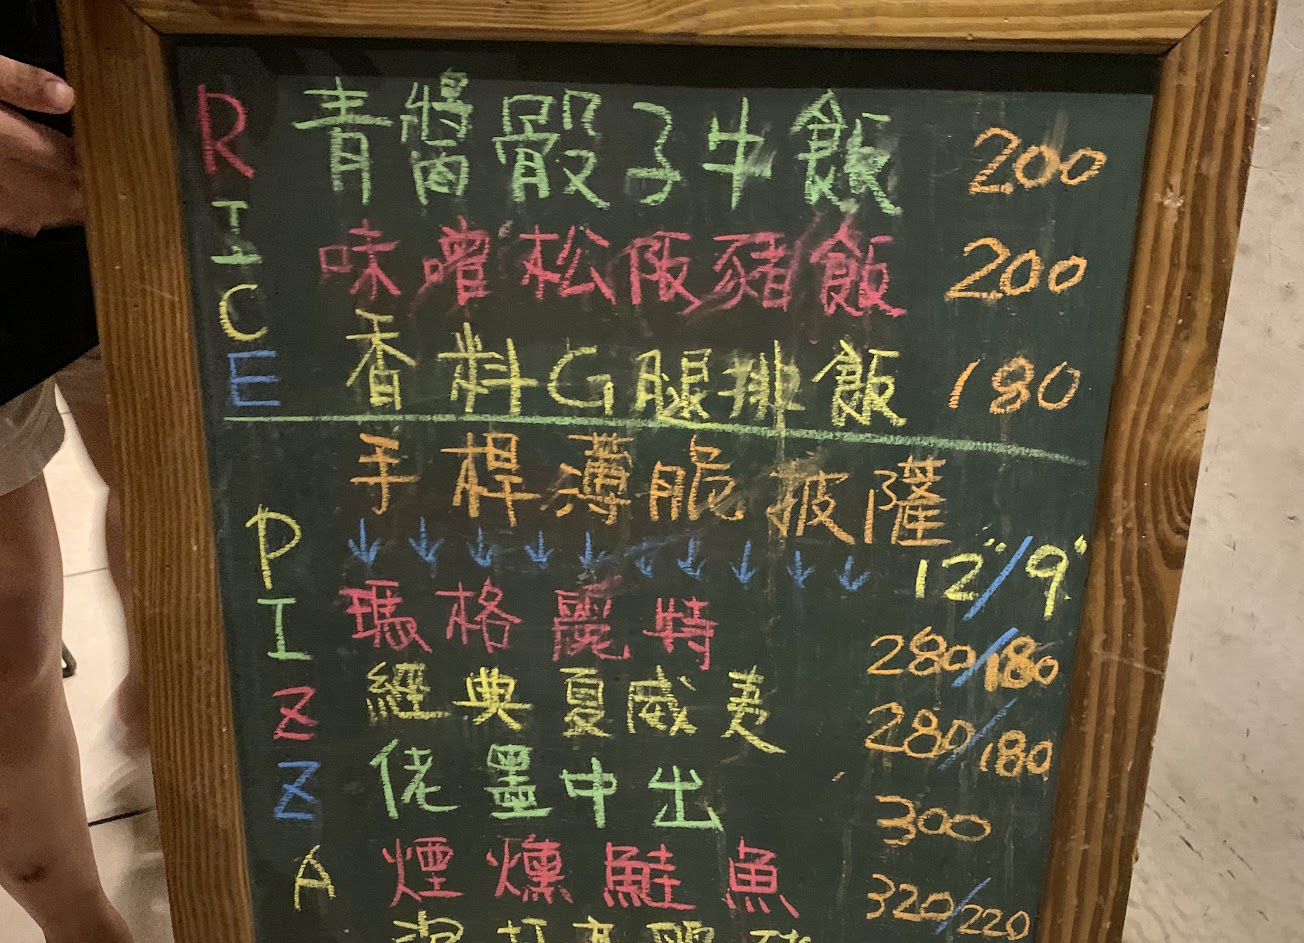 RICE
青醬骰子牛飯 200
味噌松阪豬飯 200
香料G腿排飯 180
PIZZA
手桿薄脆披薩 12"/9"
↓↓↓↓↓↓↓↓↓↓
瑪格麗特 280/180
經典夏威夷 280/180
佬墨中出 300
煙燻鮭魚 320/220